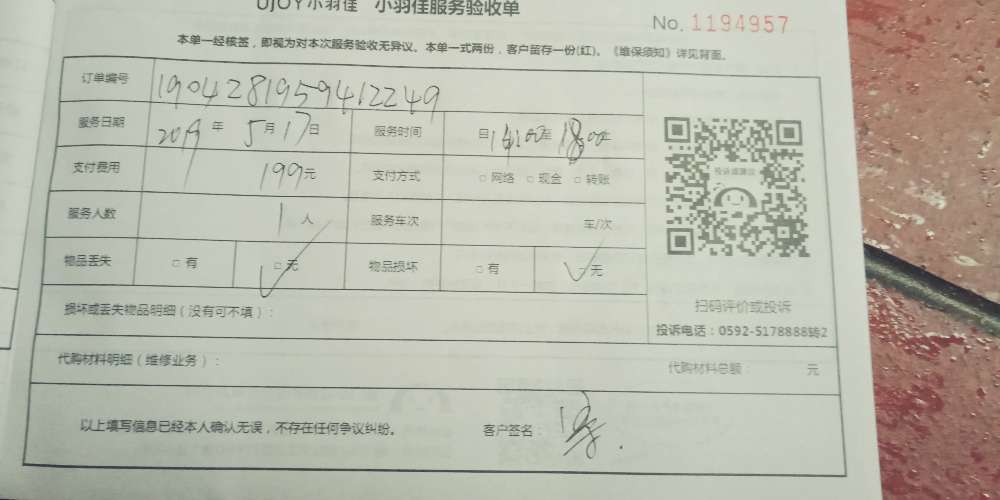 UJOY小羽佳 小羽佳服务验收单
No. 1194957
本单一经核签，即视为对本次服务验收无异议。本单一式两份，客户留存一份(红)。《维保须知》详见背面。
订单编号 190428195941 2249
服务日期 2019 年 5 月 17 日 服务时间 自 14:00 至 18:00
支付费用 199 元 支付方式 □ 网络 □ 现金 □ 转账
服务人数 1 人 服务车次 车/次
物品丢失 □ 有 □ 无 物品损坏 □ 有 □ 无
投诉或建议
扫码评价或投诉
投诉电话：0592-5178888转2
损坏或丢失物品明细（没有可不填）：
代购材料明细（维修业务）： 代购材料总额： 元
以上填写信息已经本人确认无误，不存在任何争议纠纷。 客户签名：